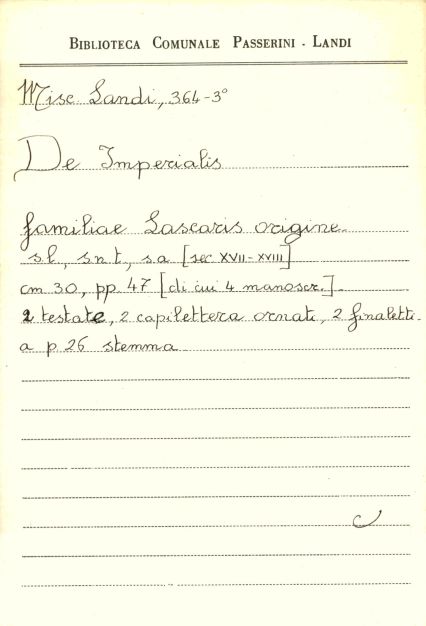 BIBLIOTECA COMUNALE PASSERINI - LANDI
Misc. Landi, 364-3°
De Imperialis
familiae Lascaris origine.
s.l., s.n.t., s.a. [sec XVII-XVIII]
cm 30, pp. 47 [di cui 4 manoscr.].
2 testate, 2 capilettera ornati, 2 finaletti.
a p 26 stemma